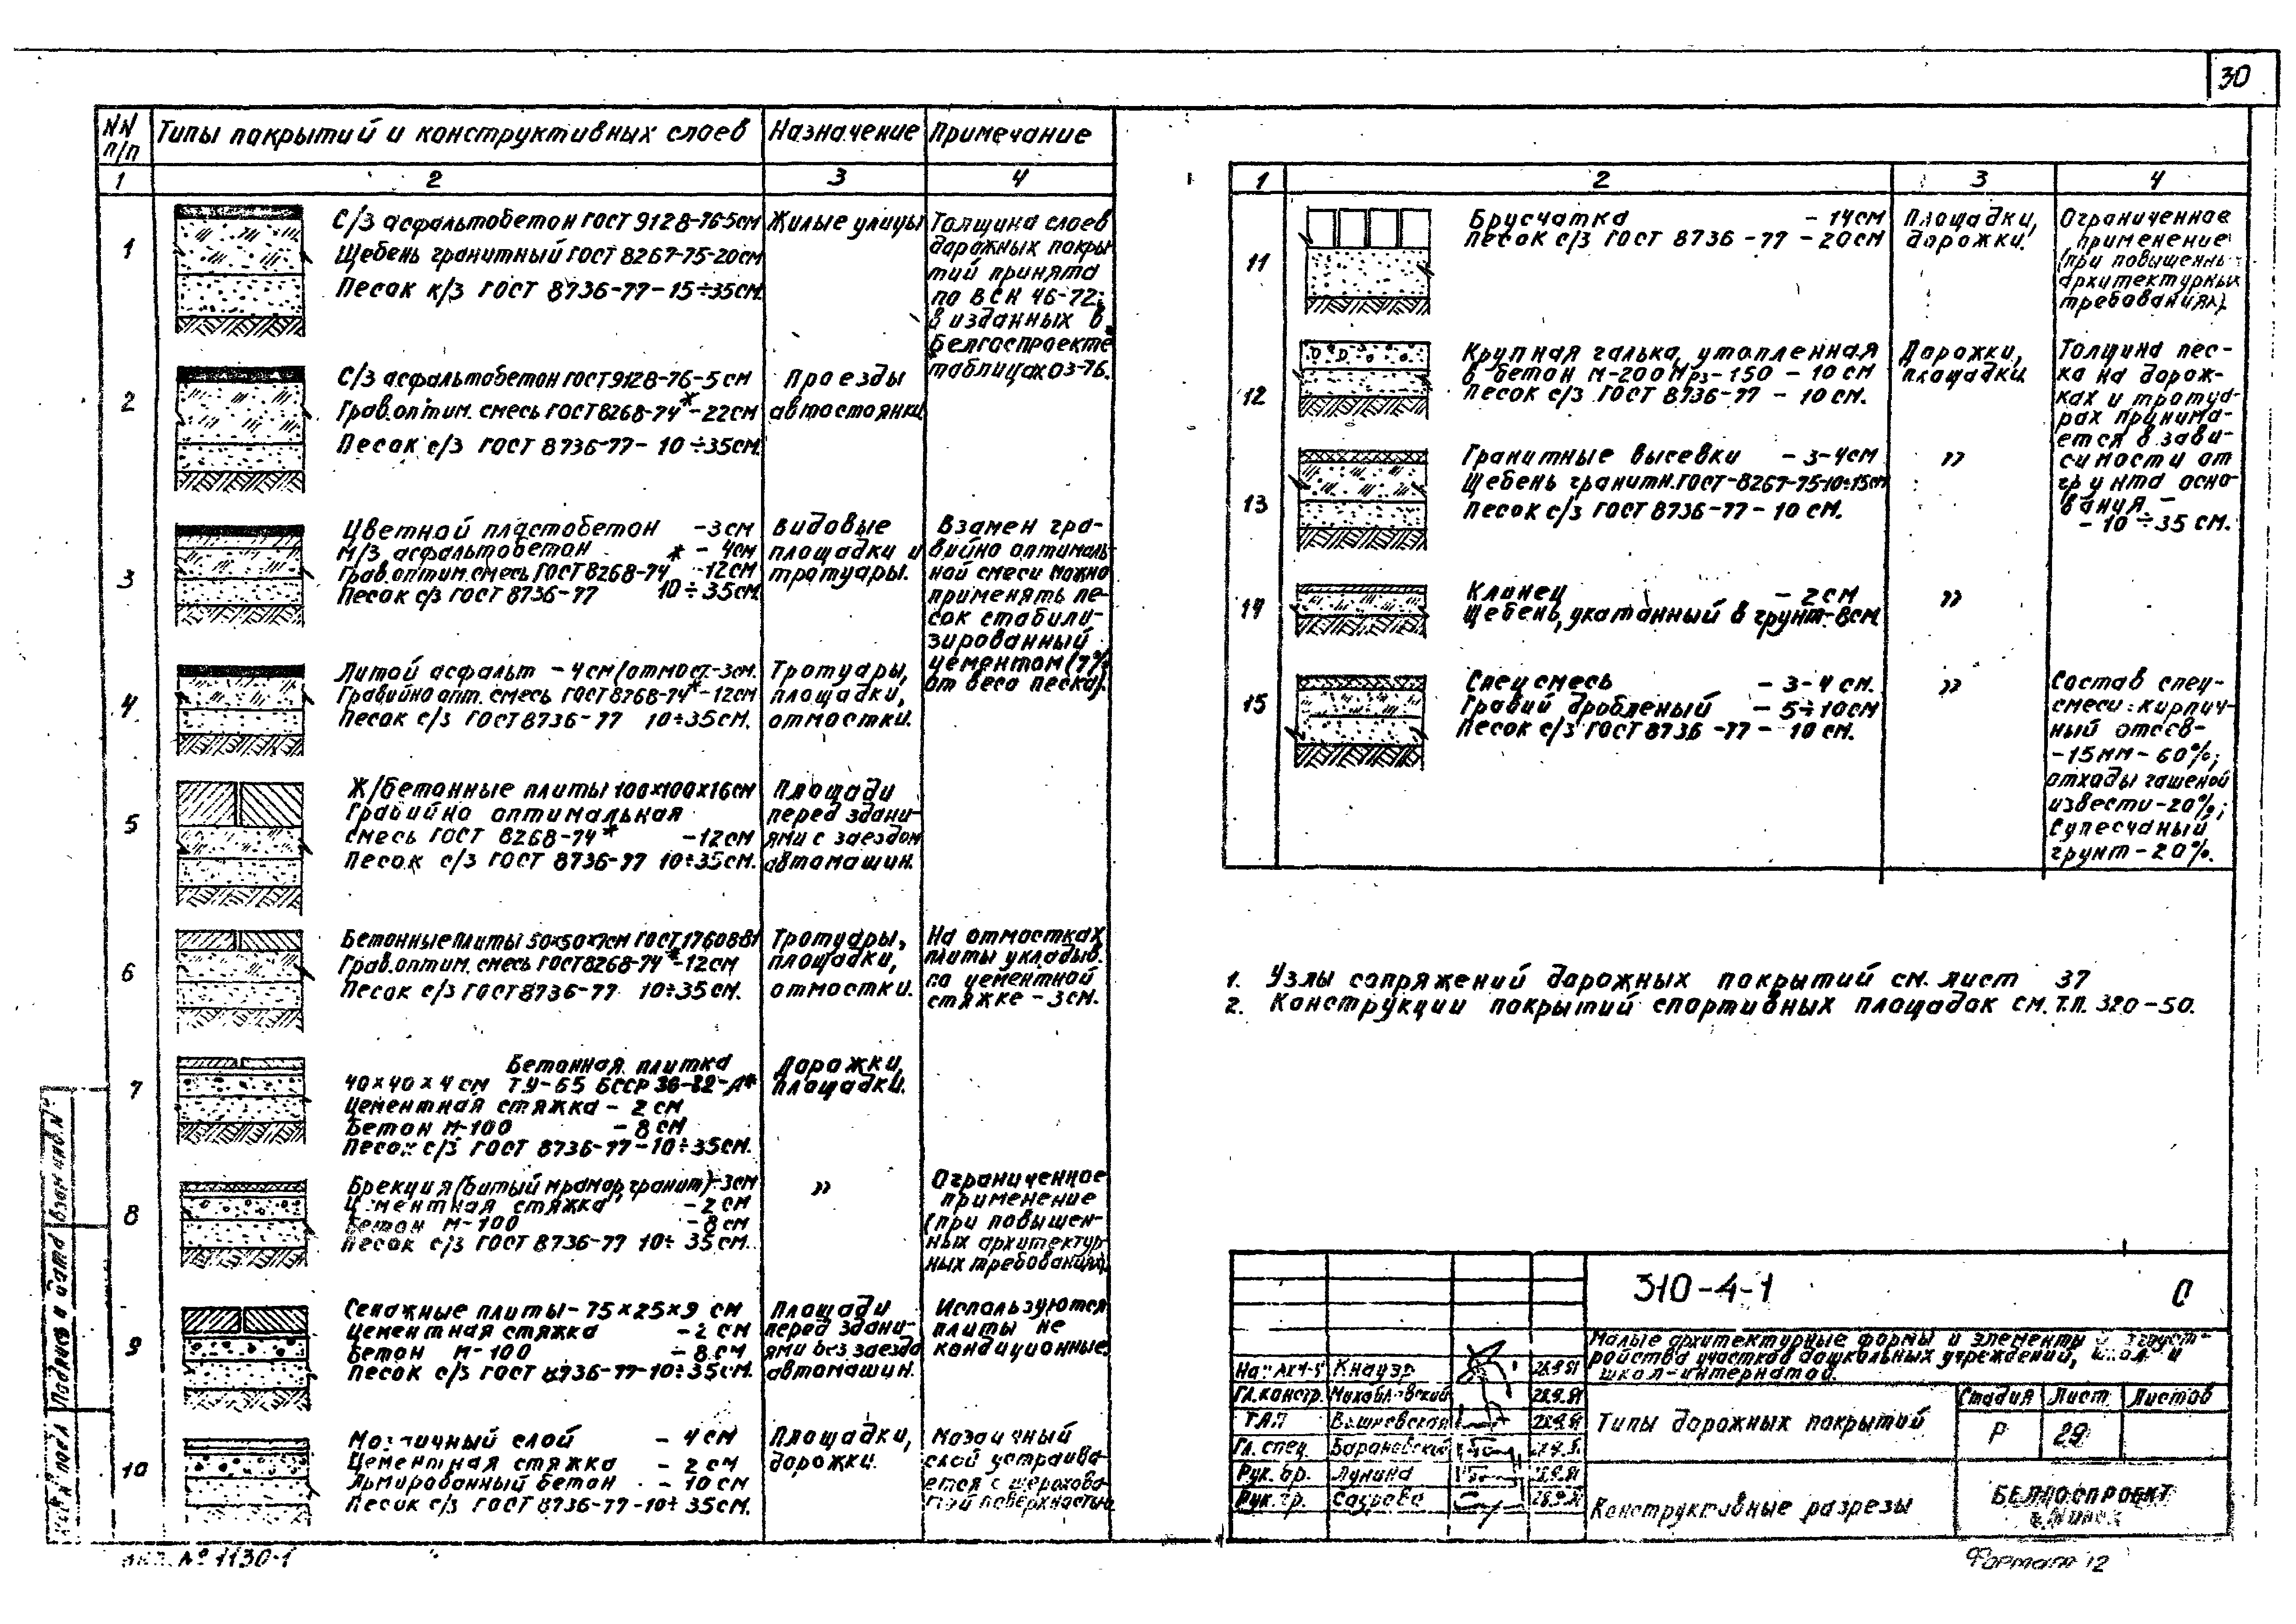 30
NN п/п
Типы покрытий и конструктивных слоев
Назначение
Примечание
1
2
3
4
1
С/з асфальтобетон ГОСТ 9128-76-5см
Щебень гранитный ГОСТ 8267-75-20см
Песок к/з ГОСТ 8736-77-15÷35см.
Жилые улицы
Толщина слоев
дорожных покры
тий принята
по ВСН 46-72;
в изданных в
Белгоспроекте
таблицах 03-76.
2
С/з асфальтобетон ГОСТ 9128-76-5см
Грав.оптим. смесь ГОСТ 8268-74*-22см
Песок с/з ГОСТ 8736-77- 10÷35см.
Проезды
автостоянки
3
Цветной пластобетон -3см
М/з асфальтобетон - 4см
Грав.оптим.смесь ГОСТ 8268-74* -12см
Песок с/з ГОСТ 8736-77 10÷35см.
Видовые
площадки и
тротуары.
Взамен гра-
вийно оптималь-
ной смеси можно
применять пе-
сок стабили-
зированный
цементом (7%
от веса песка).
4
Литой асфальт - 4см (отмост.-3см.
Гравийно опт. смесь ГОСТ 8268-74*-12см
Песок с/з ГОСТ 8736-77 10÷35см.
Тротуары,
площадки,
отмостки.
5
Ж/бетонные плиты 100х100х16см
Гравийно оптимальная
смесь ГОСТ 8268-74* -12см
Песок с/з ГОСТ 8736-77 10÷35см.
Площади
перед здани-
ями с заездом
автомашин.
6
Бетонные плиты 50х50х7см ГОСТ 17608-81
Грав.оптим. смесь ГОСТ 8268-74*-12см
Песок с/з ГОСТ 8736-77 10÷35см.
Тротуары,
площадки,
отмостки.
На отмостках
плиты укладыв.
по цементной
стяжке - 3см.
7
Бетонная плитка
40х40х4см ТУ-65 БССР 36-82-
Цементная стяжка - 2см
Бетон М-100 - 8см
Песок с/з ГОСТ 8736-77-10÷35см.
Дорожки,
площадки.
8
Брекчия (битый мрамор, гранит)-3см
Цементная стяжка - 2см
Бетон М-100 - 8см
Песок с/з ГОСТ 8736-77 10÷35см.
"
Ограниченное
применение
(при повышен-
ных архитектур
ных требованиях)
9
Сенажные плиты-75х25х9 см
Цементная стяжка - 2 см
Бетон М-100 - 8см
Песок с/з ГОСТ 8736-77-10÷35см.
Площади
перед здани-
ями без заезда
автомашин.
Используются
плиты не
кондиционные.
10
Мозаичный слой - 4см
Цементная стяжка - 2см
Армированный бетон - 10см
Песок с/з ГОСТ 8736-77-10÷35см.
Площадки,
дорожки.
Мозаичный
слой устраива-
ется с шерохова-
той поверхностью
1
2
3
4
11
Брусчатка - 14см
Песок с/з ГОСТ 8736-77-20см
Площадки,
дорожки.
Ограниченное
применение
(при повышенных
архитектурных
требованиях).
12
Крупная галька, утопленная
в бетон М-200 Мрз-150 - 10см
Песок с/з ГОСТ 8736-77 - 10см.
Дорожки,
площадки
Толщина пес-
ка на дорож-
ках и тротуа-
рах принима-
ется в зави-
симости от
грунта осно-
вания -
- 10÷35 см.
13
Гранитные высевки - 3-4см
Щебень гранитн.ГОСТ-8267-75-10÷15см
Песок с/з ГОСТ 8736-77- 10 см.
"
14
Клинец - 2см
Щебень, укатанный в грунт-8см.
"
15
Спецсмесь - 3-4 см.
Гравий дробленый - 5÷10см
Песок с/з ГОСТ 8736-77- 10см.
"
Состав спец-
смеси: кирпич-
ный отсев-
-15мм-60%;
отходы гашеной
извести-20%;
Супесчаный
грунт-20%.
1. Узлы сопряжений дорожных покрытий см. лист 37
2. Конструкции покрытий спортивных площадок см. т.п. 320-50.
310-4-1
0
Малые архитектурные формы и элементы благоуст-
ройства участков дошкольных учреждений, школ и
школ-интернатов.
Нач. АКМ-5 Кнауэр 28.9.81
Гл.констр. Михайловский 28.9.81
ГАП Вашкевская 28.9.81
Гл. спец. Барановский
Рук. бр. Лунина 28.9.81
Рук. гр. 28.9.81
Типы дорожных покрытий
Стадия Лист Листов
Р 29
Конструктивные разрезы
БЕЛГОСПРОЕКТ
г. Минск
Инв. № подл Подпись и дата Взам инв. №
инв. № 1130-1
Формат 12